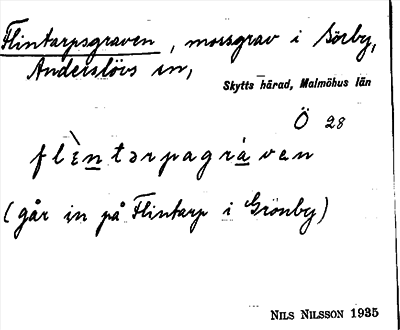 Flintarpsgraven, mossgrav i Sörby,
Anderslövs sn,
Skytts härad, Malmöhus län
Ö 28
flèntərpagràvən
(går in på Flintarp i Grönby)
NILS NILSSON 1935